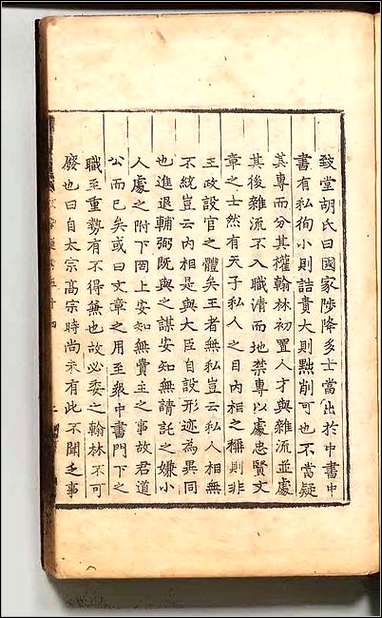 致堂胡氏曰國家陟降多士當出於中書中
書有私狥小則詰責大則黜削可也不當疑
其專而分其權翰林初置人才與雜流並處
其後雜流不入職清而地禁專以處忠賢文
章之士然有天子私人之目內相之稱則非
王政設官之體矣王者無私豈云私人相無
不統豈云內相是與大臣自設形迹為異同
也進退輔弼既與之謀安知無請託之嫌小
人處之附下罔上安知無賣主之事故君道
公而已矣或曰文章之用至衆中書門下之
職至重勢有不得兼也故必委之翰林不可
廢也曰自太宗髙宗時尚未有此不聞乏事